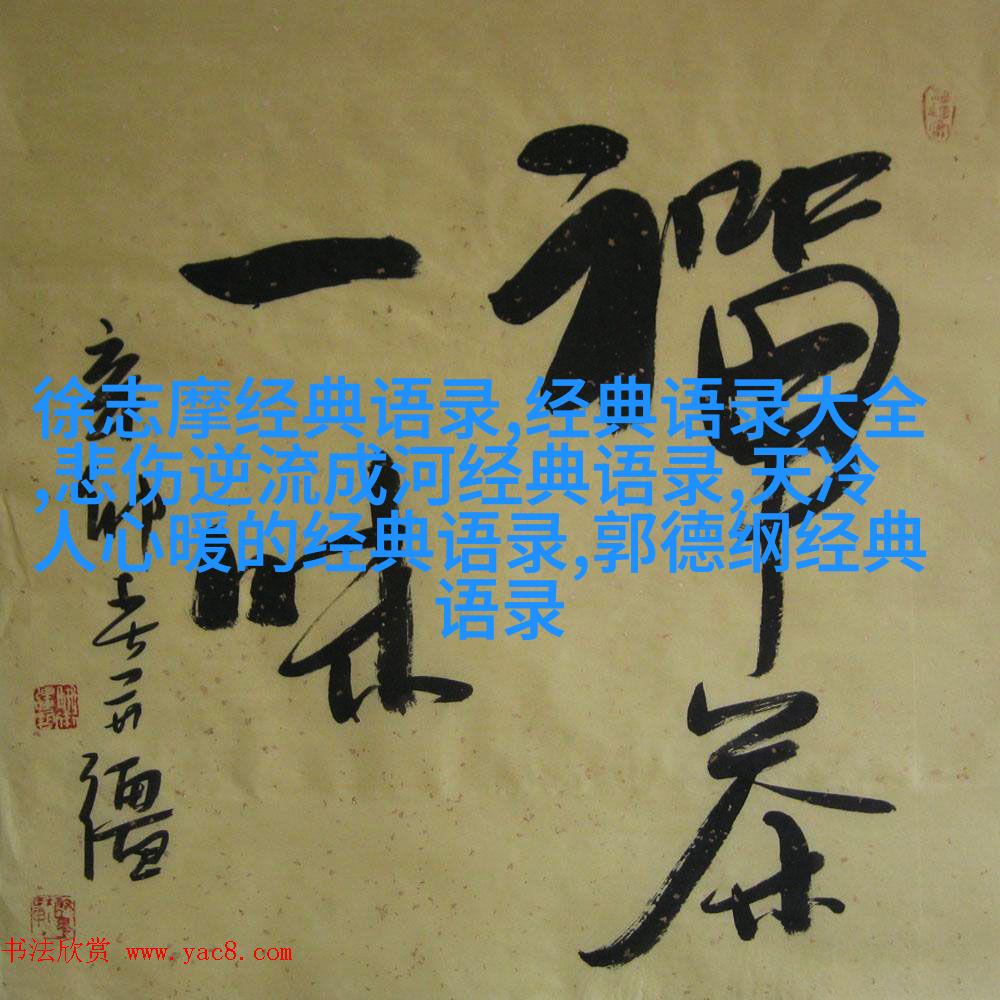 禪茶
一味
徐志摩经典语录,经典语录大全
,悲伤逆流成河经典语录,天冷
人心暖的经典语录,郭德纲经典
语录
书法欣赏 www.yac8.com